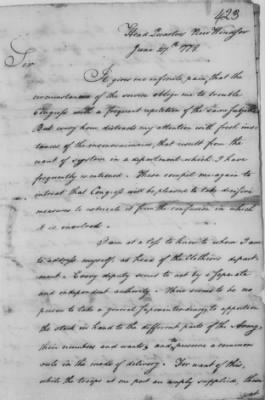 423
Head Quarters New Windsor
June 27th 1779
Sir
It gives me infinite pain, that the
circumstances of the service oblige me to trouble
Congress with a frequent repetition of the same subject
But every hour distracts my attention with fresh ins-
tances of the inconveniences, that result from the
want of system in a department which I have
frequently mentioned. These compel me again to
intreat that Congress will be pleased to take decisive
measures to extricate it from the confusion in which
it is involved.
I am at a loss to know to whom I am
to address myself as head of the Clothier's depart-
ment. Every deputy seems to act by a separate
and independent authority. There seems to be no
person to take a general superintendency to apportion
the stock in hand to the different parts of the Army,
their numbers and wants, and to preserve a common
rule in the mode of delivery. For want of this,
while the troops at one post are amply supplied, those